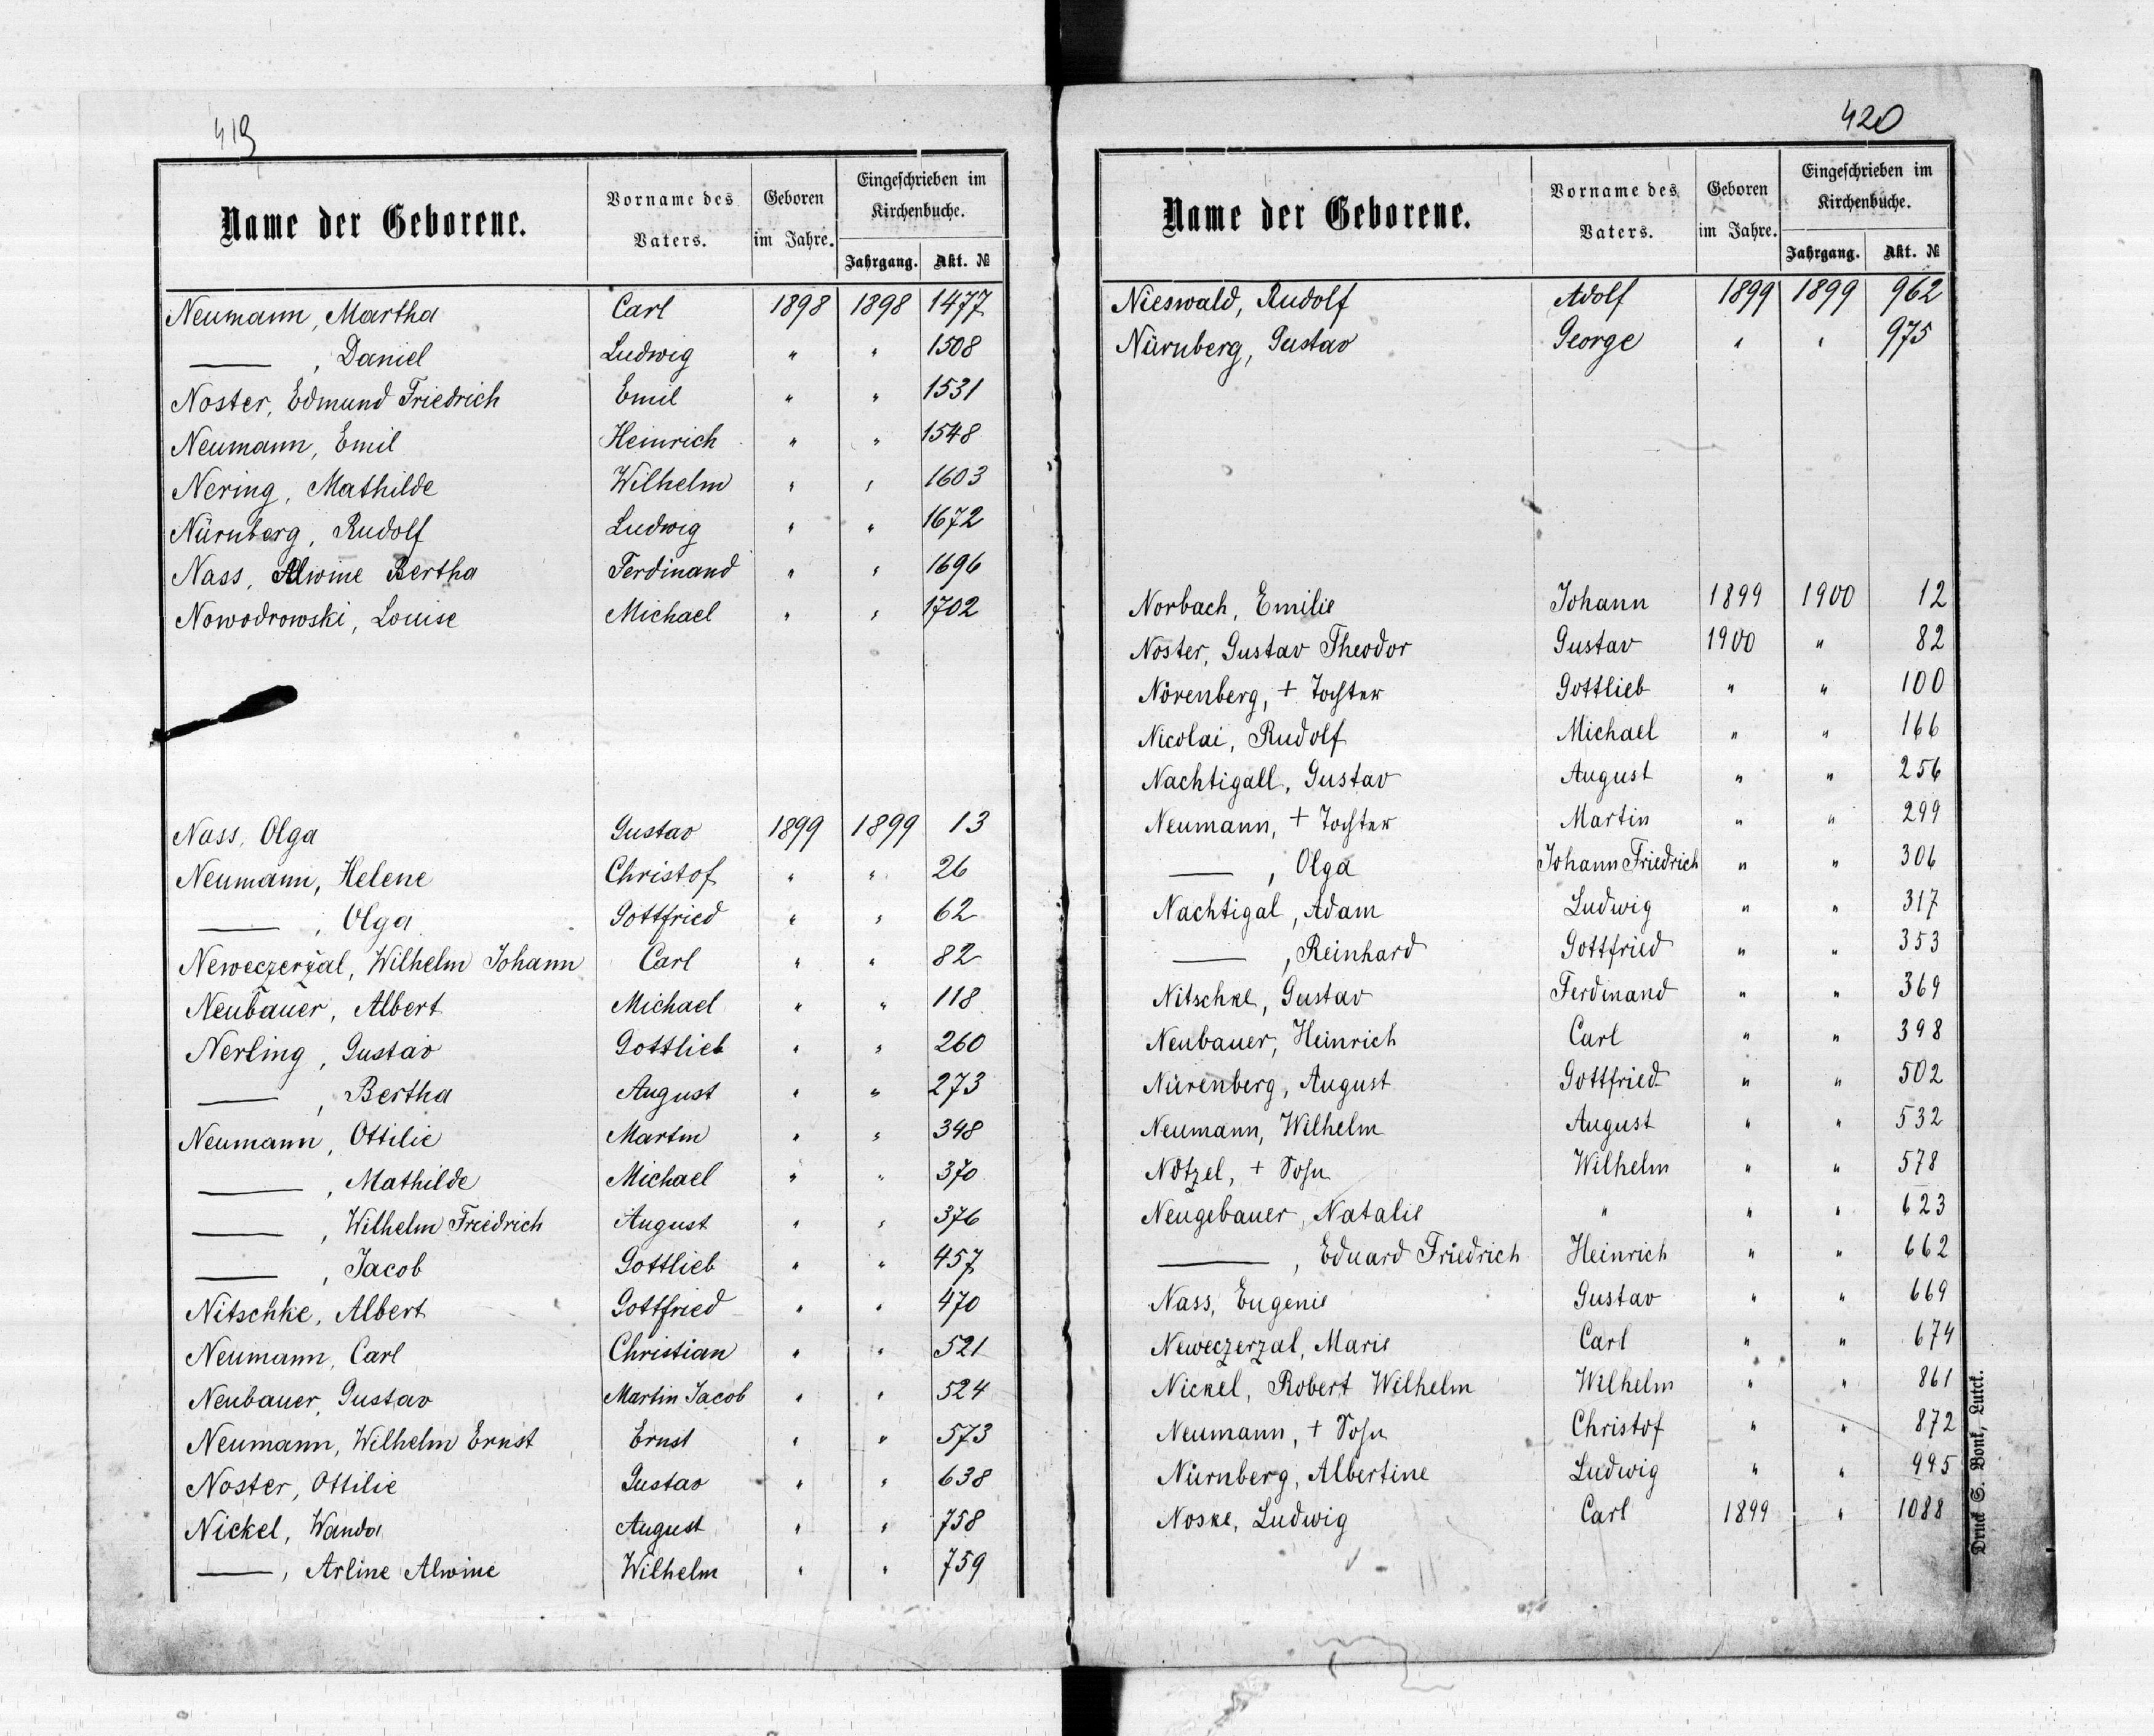 419
Name der Geborene. Vorname des Vaters. Geboren im Jahre. Eingeschrieben im Kirchenbuche. Jahrgang. Akt. №
Neumann, Martha Carl 1898 1898 1477
——, Daniel Ludwig " " 1508
Noster, Edmund Friedrich Emil " " 1531
Neumann, Emil Heinrich " " 1548
Nering, Mathilde Wilhelm " " 1603
Nürnberg, Rudolf Ludwig " " 1672
Nass, Alwine Bertha Ferdinand " " 1696
Nowodrowski, Louise Michael " " 1702
Nass, Olga Gustav 1899 1899 13
Neumann, Helene Christof " " 26
——, Olga Gottfried " " 62
Neweczerzal, Wilhelm Johann Carl " " 82
Neubauer, Albert Michael " " 118
Nerling, Gustav Gottlieb " " 260
——, Bertha August " " 273
Neumann, Ottilie Martin " " 348
——, Mathilde Michael " " 370
——, Wilhelm Friedrich August " " 376
——, Jacob Gottlieb " " 457
Nitschke, Albert Gottfried " " 470
Neumann, Carl Christian " " 521
Neubauer, Gustav Martin Jacob " " 524
Neumann, Wilhelm Ernst Ernst " " 573
Noster, Ottilie Gustav " " 638
Nickel, Wanda August " " 758
——, Arline Alwine Wilhelm " " 759
420
Name der Geborene. Vorname des Vaters. Geboren im Jahre. Eingeschrieben im Kirchenbuche. Jahrgang. Akt. №
Nieswald, Rudolf Adolf 1899 1899 962
Nürnberg, Gustav George " " 975
Norbach, Emilie Johann 1899 1900 12
Noster, Gustav Theodor Gustav 1900 " 82
Nörenberg, + Tochter Gottlieb " " 100
Nicolai, Rudolf Michael " " 166
Nachtigall, Gustav August " " 256
Neumann, + Tochter Martin " " 299
——, Olga Johann Friedrich " " 306
Nachtigal, Adam Ludwig " " 317
——, Reinhard Gottfried " " 353
Nitschke, Gustav Ferdinand " " 369
Neubauer, Heinrich Carl " " 398
Nürenberg, August Gottfried " " 502
Neumann, Wilhelm August " " 532
Nötzel, + Sohn Wilhelm " " 578
Neugebauer, Natalie " " " 623
——, Eduard Friedrich Heinrich " " 662
Nass, Eugenie Gustav " " 669
Neweczerzal, Marie Carl " " 674
Nickel, Robert Wilhelm Wilhelm " " 861
Neumann, + Sohn Christof " " 872
Nürnberg, Albertine Ludwig " " 995
Noske, Ludwig Carl 1899 " 1088
Druck S. Bonk, Lutck.